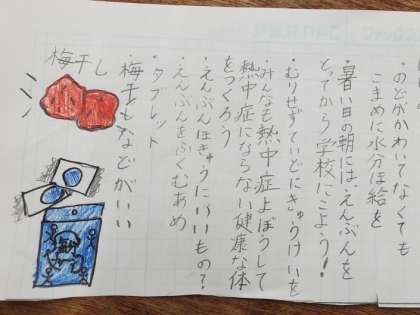 ・のどがかわいてなくても
こまめに水分ほ給を
・暑い日の朝には、えんぶんを
とってから学校にこよう!
・むりせずていどにきゅうけいを
・みんなも熱中症よぼうして
熱中症にならない健康な体
をつくろう
・えんぶんほきゅうにいいもの?
・えんぶんをふくむあめ
・タブレット
・梅干しなどがいい
梅干し